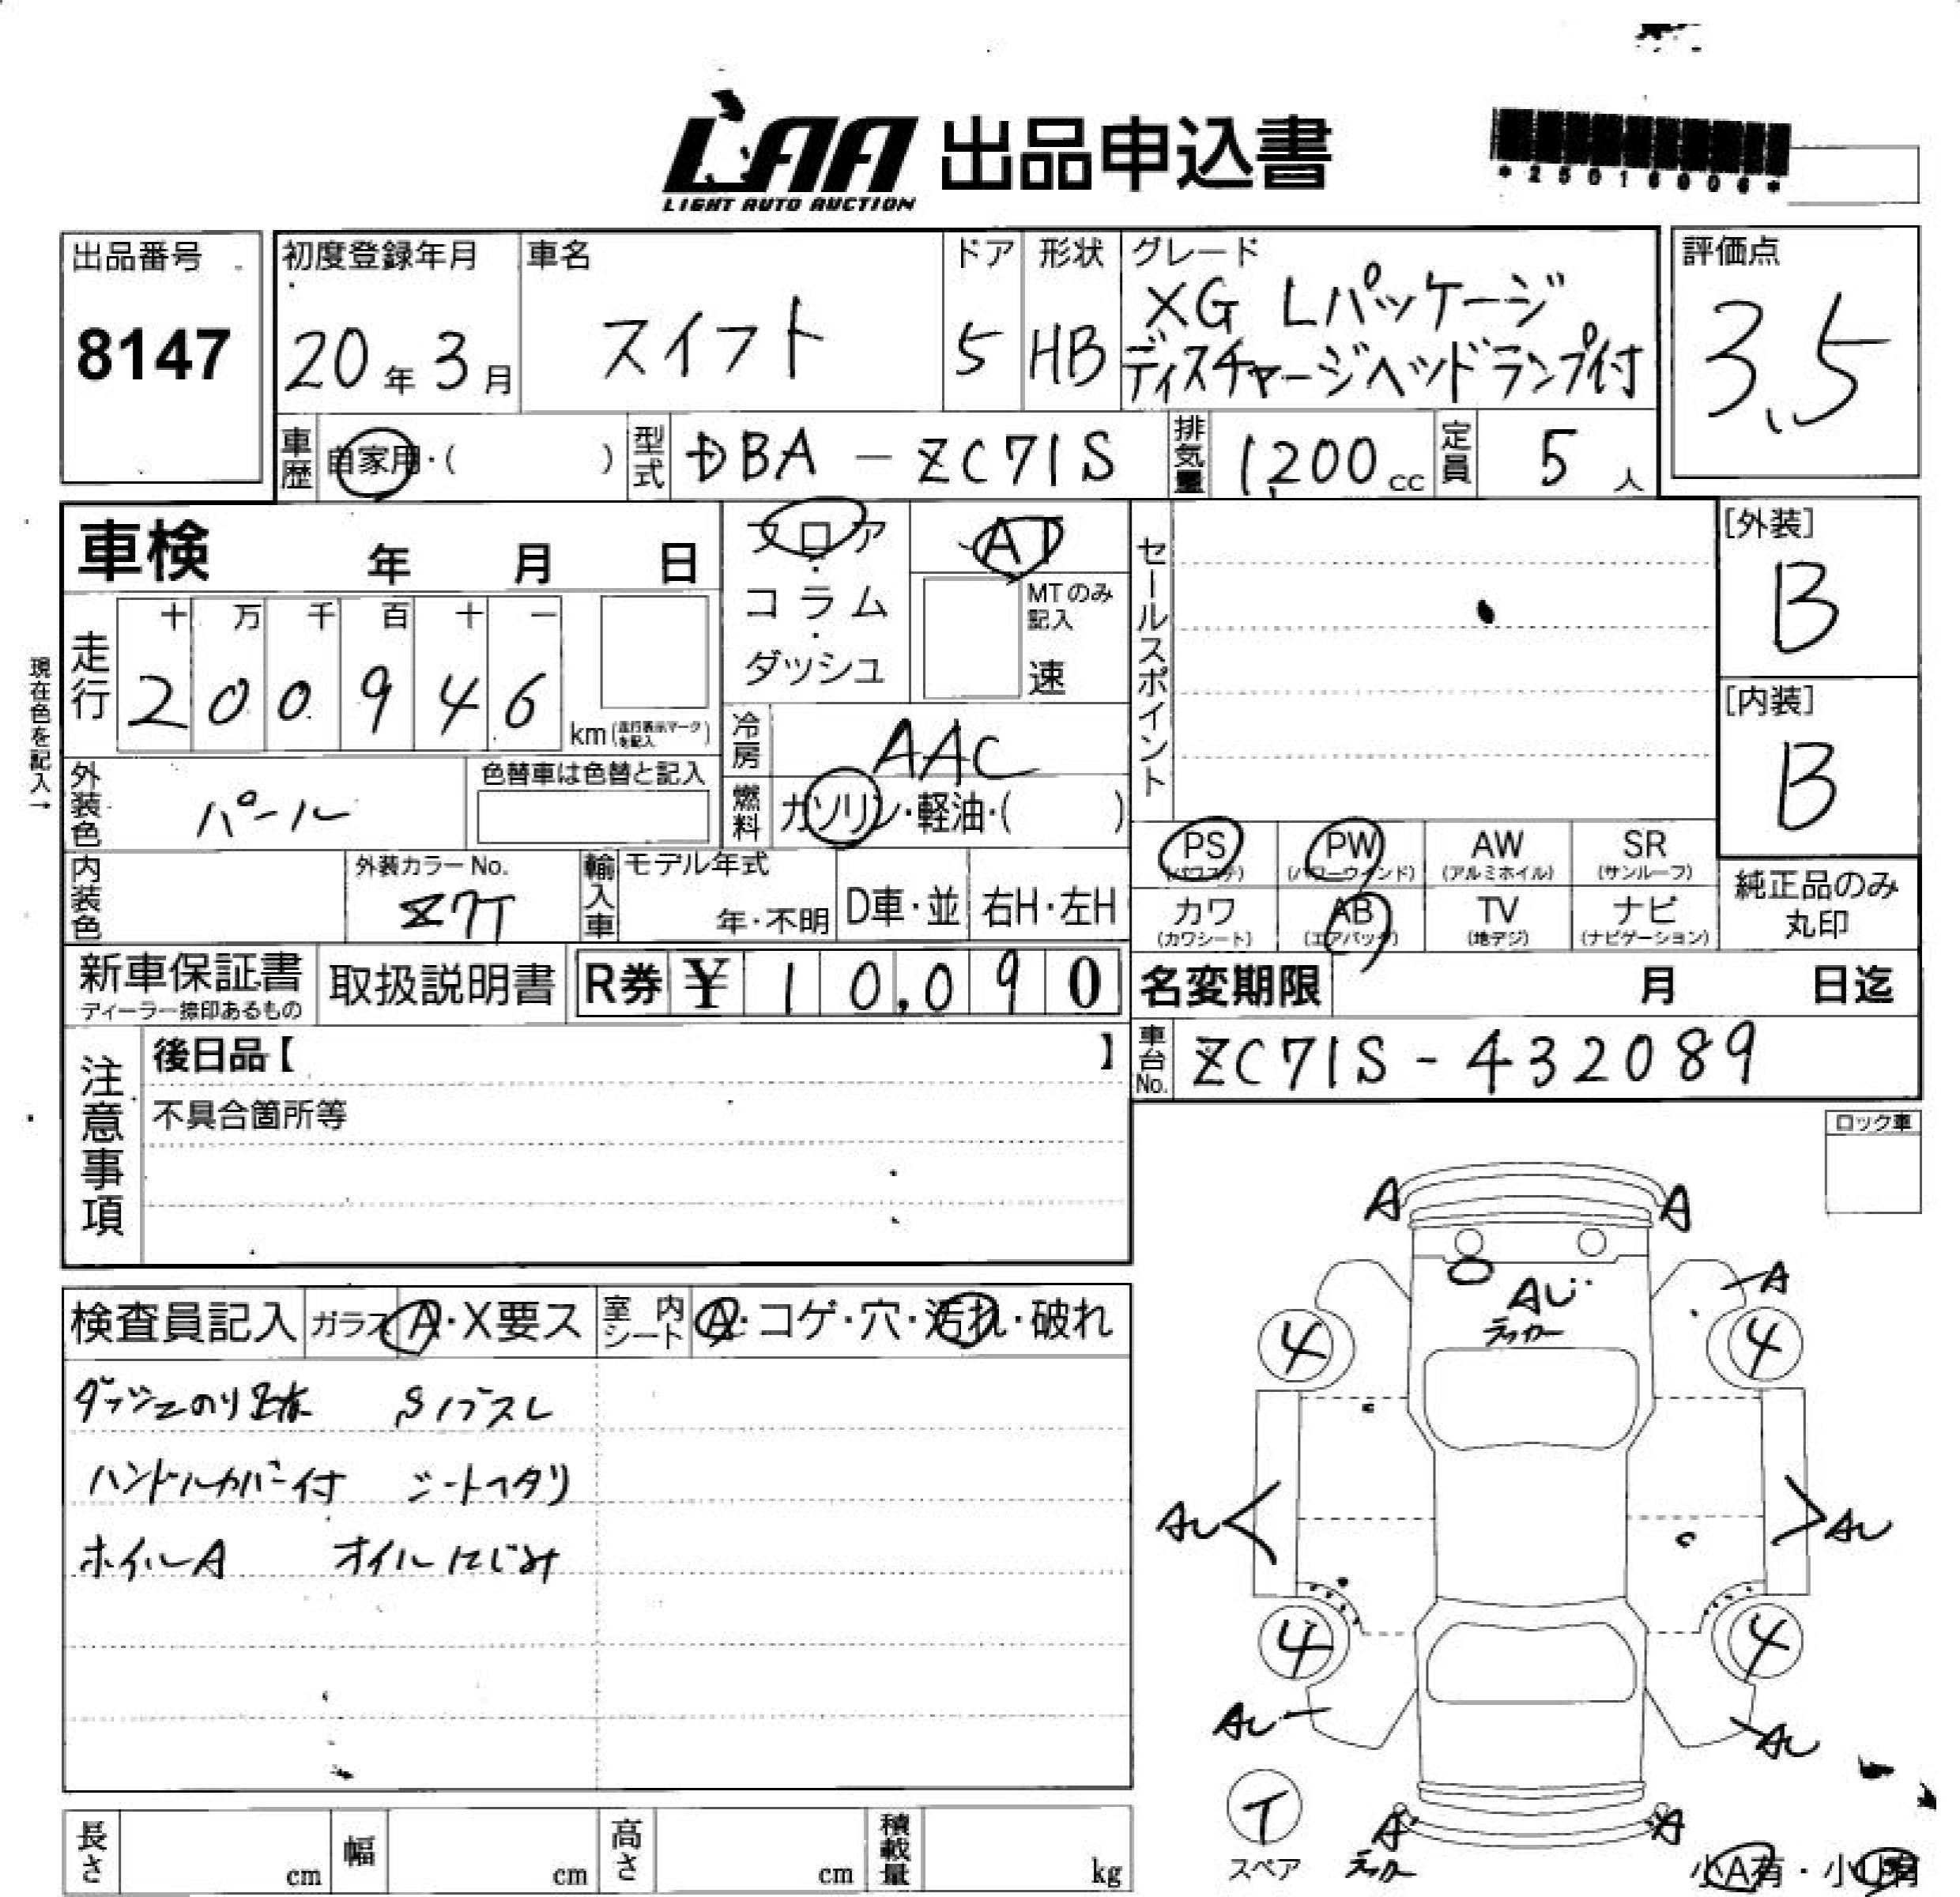 LAA 出品申込書
LIGHT AUTO AUCTION
*25016906*
出品番号
8147
初度登録年月
20年3月
車名
スイフト
ドア
5
形状
HB
グレード
XG Lパッケージ
ディスチャージヘッドランプ付
評価点
3.5
車歴
自家用・( )
型式
DBA-ZC71S
排気量
1,200cc
定員
5人
車検 年 月 日
フロア・コラム・ダッシュ
AT
MTのみ記入
速
セールスポイント
[外装]
B
[内装]
B
現在色を記入→
走行
十 万 千 百 十 一
2 0 0 9 4 6
km(走行表示マークを記入)
冷房
AAC
燃料
ガソリン・軽油・( )
外装色
パール
色替車は色替と記入
内装色
外装カラーNo.
Z7T
輸入車
モデル年式
年・不明
D車・並
右H・左H
PS
(パワステ)
PW
(パワーウインド)
AW
(アルミホイル)
SR
(サンルーフ)
カワ
(カワシート)
AB
(エアバッグ)
TV
(地デジ)
ナビ
(ナビゲーション)
純正品のみ
丸印
新車保証書
ディーラー捺印あるもの
取扱説明書
R券 ¥ 10,090
名変期限 月 日迄
注意事項
後日品【 】
不具合箇所等
車台No.
ZC71S-432089
ロック車
検査員記入
ガラス A・X要ス
室内シート A・コゲ・穴・汚れ・破れ
ダッシュのり跡
ハンドルカバー付 シートヘタリ
ホイルA オイルにじみ
A A
A
AU
ラッカー
4 4
AU AU
4 4
AU AU
T
スペア
A A
ラッカー
小A有・小U有
長さ cm
幅 cm
高さ cm
積載量 kg